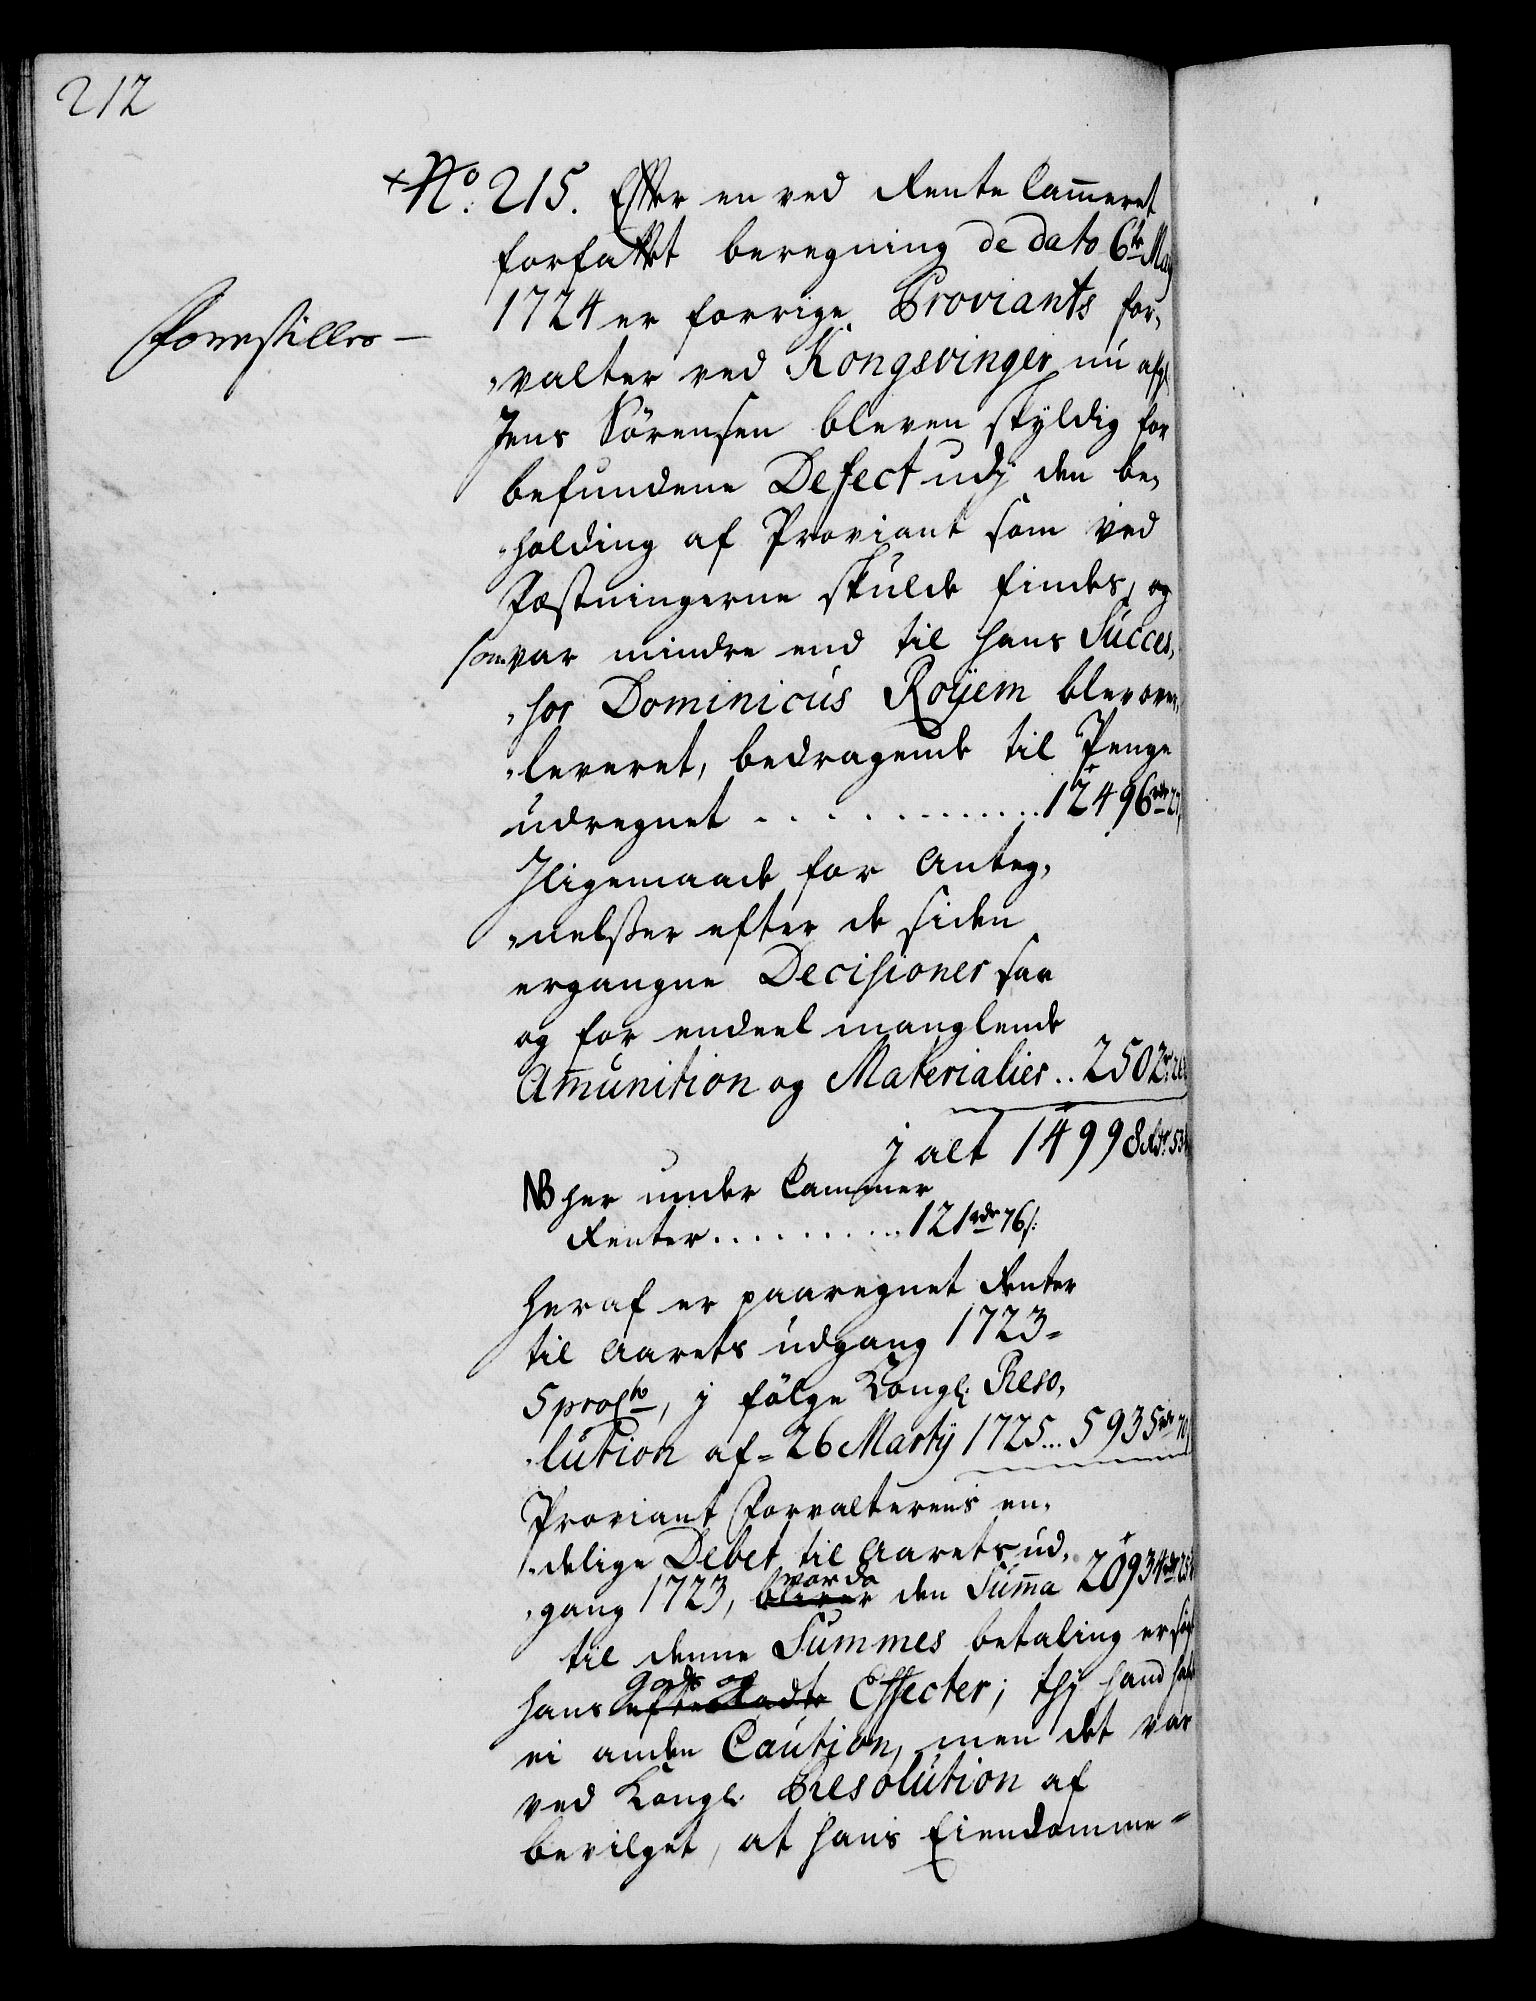 212
+ No: 215. Efter en ved Rente Cammeret
forfattet beregning de dato 6te May
1724 er forrige Proviants for,
,valter ved Kongsvinger nu afg.
Jens Sörensen bleven skyldig for
befundene Defect udj den be,
,holding af Proviant som ved
Fæstningerne skulde findes, og
som var mindre end til hans Succes,
,sor Dominicus Royem blev over,
,leveret, bedragende til Penge
udregnet . . . . . . . . . . . . 12496 rdr
Forestilles —
Jligemaade for Anteg,
,nelsser efter de siden
ergangne Decisioner saa
og for endeel manglende
Amunition og Materialier .. 2502
j alt 14998 Rdr 53
NB her under Cammer
Renter . . . . . . . . . . 121 rdr 76 s:
heraf er paaregnet Renter
til Aarets udgang 1723=
5 proCto, j fölge Kongl. Reso,
,lution af = 26 Martij 1725 ... 5935 rdr
Proviant Forvalterens en,
,delige Debet til Aarets ud,
,gang 1723, bliver var da den Suma 20934 rdr
til denne Summes betaling er
hans efterladte gods og Effecter; thj hand
ei anden Caution, men det var
ved Kongl. Resolution af
bevilget, at hans Eiendomme=